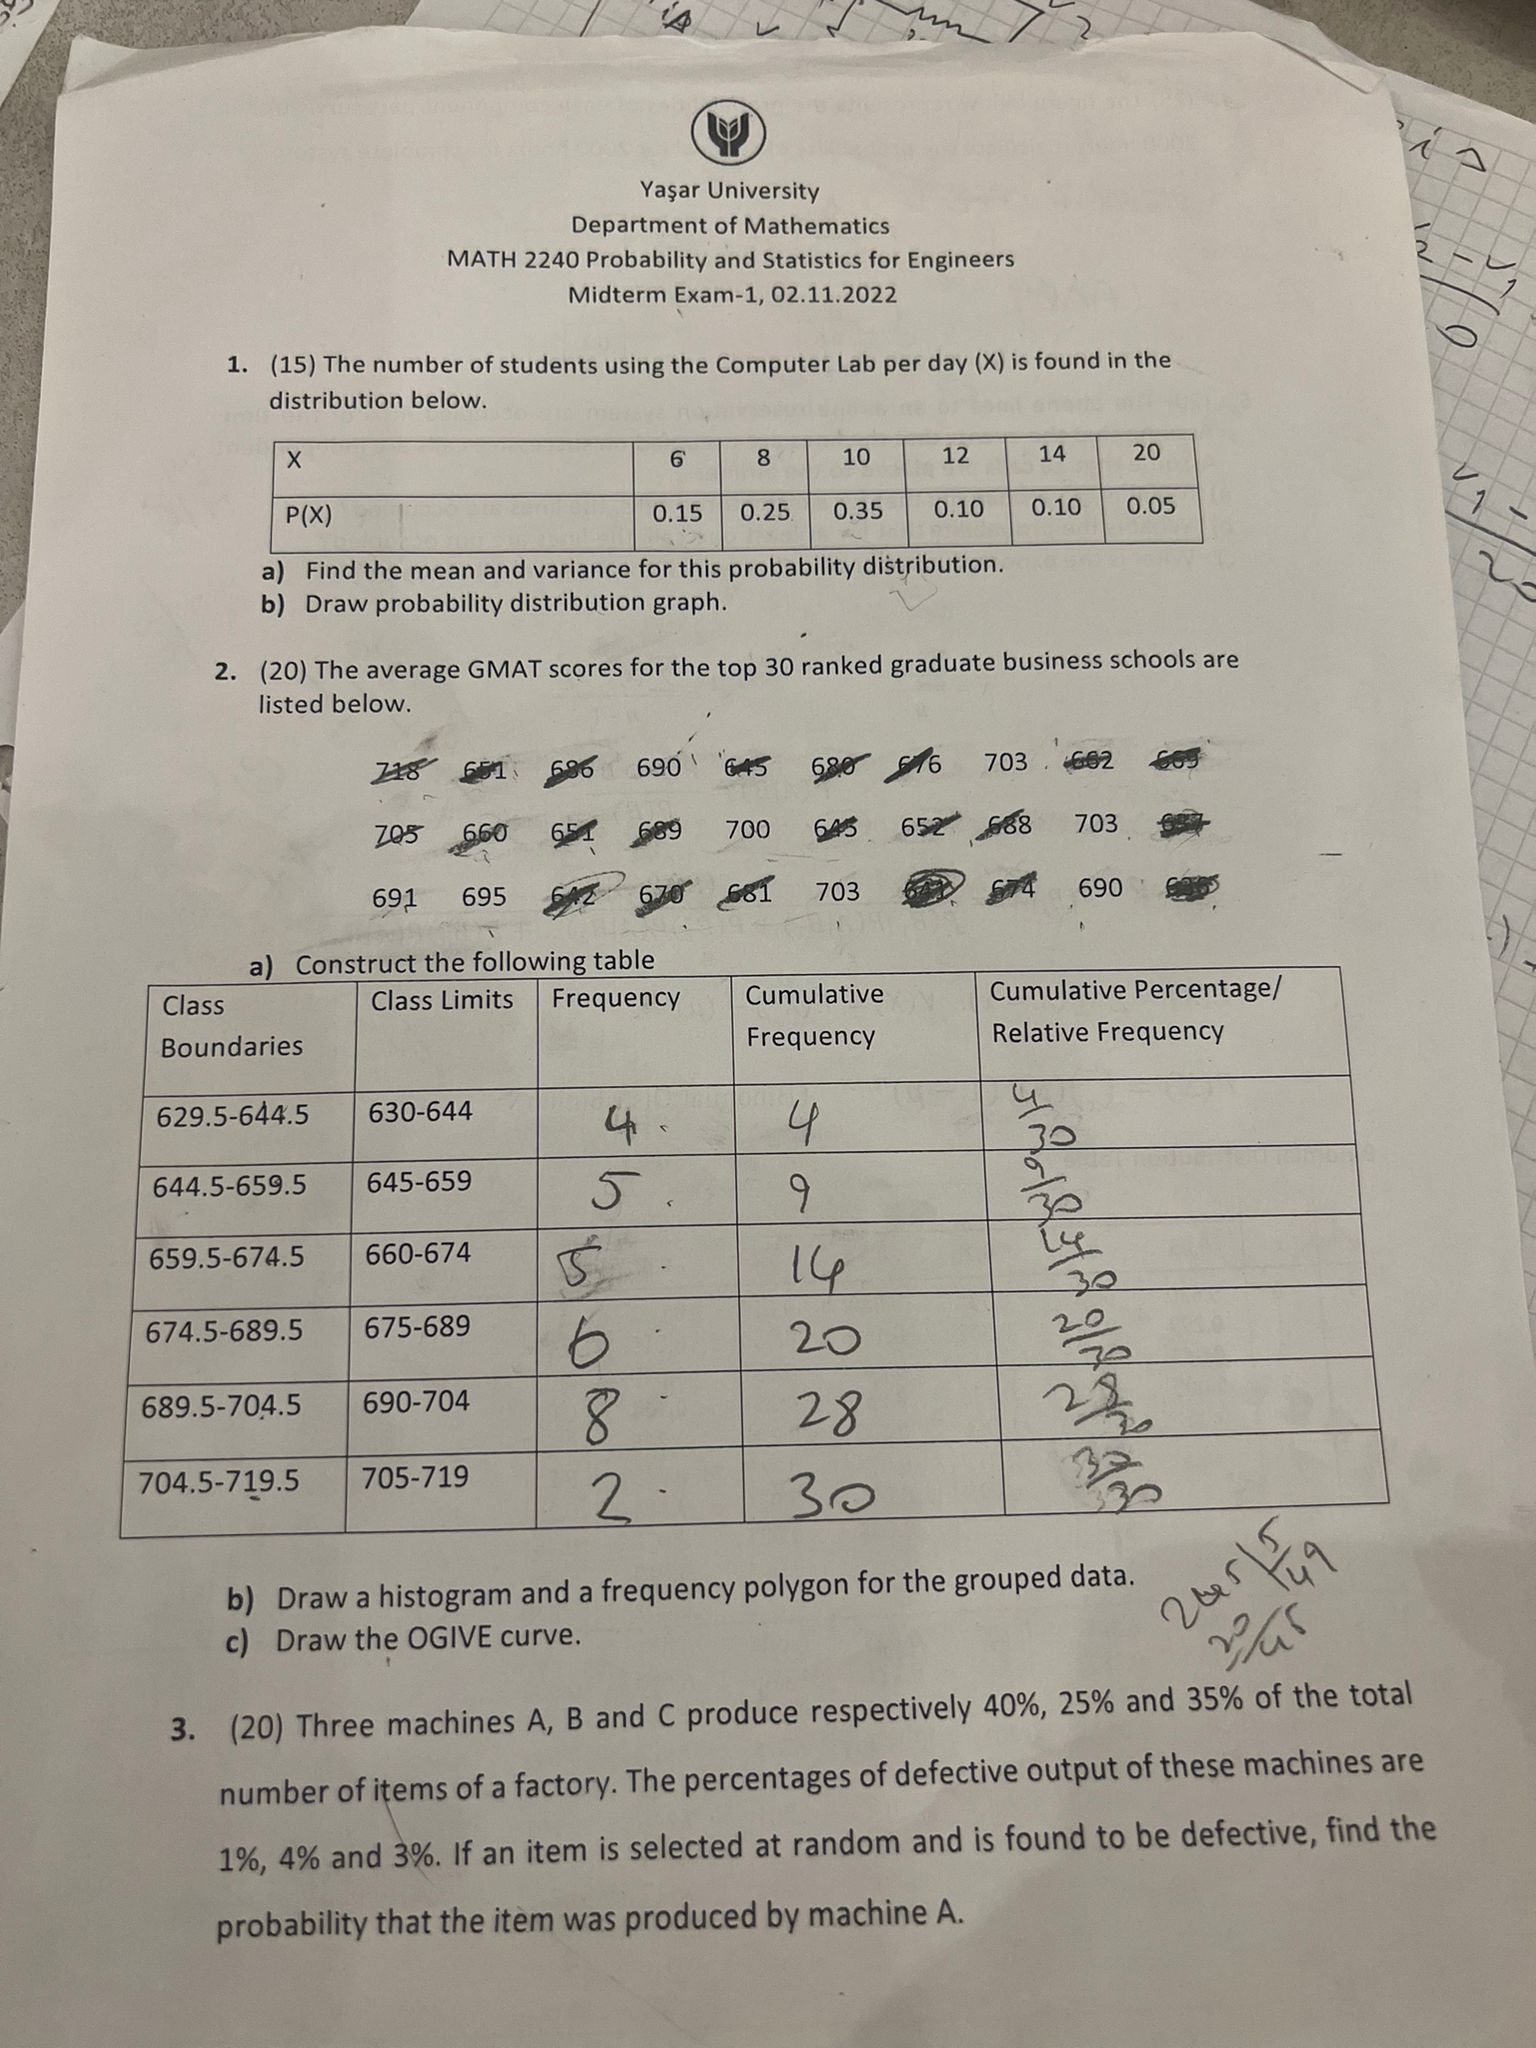 Yaşar University
Department of Mathematics
MATH 2240 Probability and Statistics for Engineers
Midterm Exam-1, 02.11.2022
1. (15) The number of students using the Computer Lab per day (X) is found in the
distribution below.
X 6 8 10 12 14 20
P(X) 0.15 0.25 0.35 0.10 0.10 0.05
a) Find the mean and variance for this probability distribution.
b) Draw probability distribution graph.
2. (20) The average GMAT scores for the top 30 ranked graduate business schools are
listed below.
718 651 686 690 645 680 676 703 662 669
705 660 651 689 700 645 652 688 703
691 695 642 670 681 703 641 674 690
a) Construct the following table
Class Boundaries Class Limits Frequency Cumulative Frequency Cumulative Percentage/ Relative Frequency
629.5-644.5 630-644 4 4 4/30
644.5-659.5 645-659 5 9 9/30
659.5-674.5 660-674 5 14 14/30
674.5-689.5 675-689 6 20 20/30
689.5-704.5 690-704 8 28 28/30
704.5-719.5 705-719 2 30 30/30
b) Draw a histogram and a frequency polygon for the grouped data.
c) Draw the OGIVE curve.
3. (20) Three machines A, B and C produce respectively 40%, 25% and 35% of the total
number of items of a factory. The percentages of defective output of these machines are
1%, 4% and 3%. If an item is selected at random and is found to be defective, find the
probability that the item was produced by machine A.